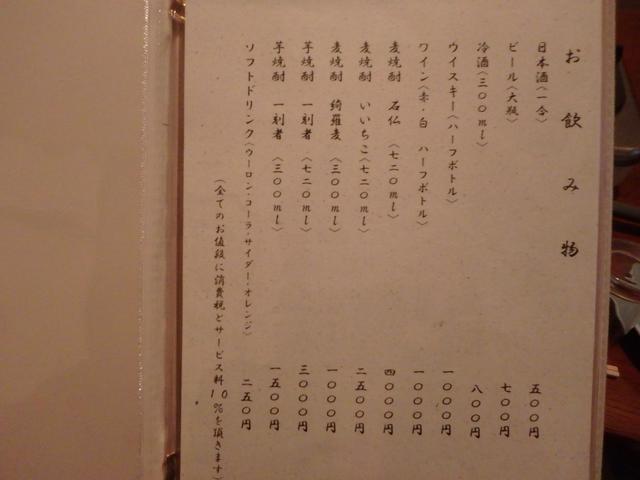 お飲み物
日本酒(一合) 五〇〇円
ビール(大瓶) 七〇〇円
冷酒(三〇〇ml) 八〇〇円
ウイスキー(ハーフボトル) 一〇〇〇円
ワイン(赤・白 ハーフボトル) 一〇〇〇円
麦焼酎 石仏(七二〇ml) 四〇〇〇円
麦焼酎 いいちこ(七二〇ml) 二五〇〇円
麦焼酎 綺羅麦(三〇〇ml) 一〇〇〇円
芋焼酎 一刻者(七二〇ml) 三〇〇〇円
芋焼酎 一刻者(三〇〇ml) 一五〇〇円
ソフトドリンク(ウーロン・コーラ・サイダー・オレンジ) 二五〇円
(全てのお値段に消費税とサービス料10%を頂きます)